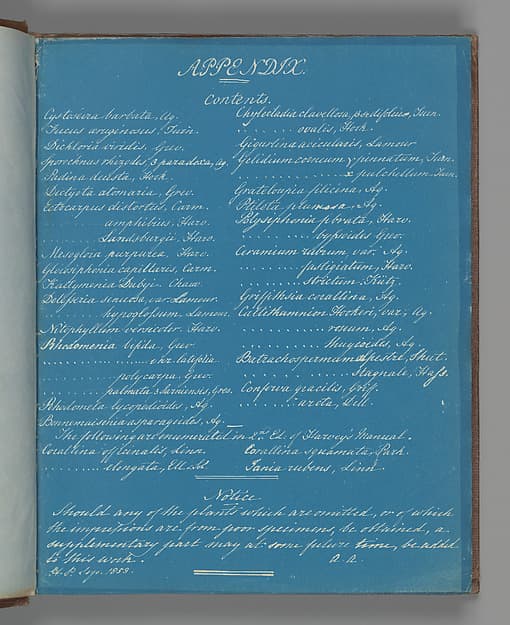 APPENDIX.
Contents.
Cystoseira barbata, Ag.
Fucus
Dichloria viridis, Grev.
Sporochnus rhizodes, β paradoxa, Ag.
Padina deusta, Hook.
Dictyota atomaria, Grev.
Ectocarpus distortus, Carm.
........ amphibius, Harv.
........ Landsburgii, Harv.
Mesogloia purpurea, Harv.
Gloiosiphonia capillaris, Carm.
Kallymenia Dubyi. Chauv.
Delesseria sinuosa, var. Lamour.
........ hypoglossum Lamour.
Nitophyllum versicolor. Harv.
Rhodomenia bifida, Grev.
........ var.
........ polycarpa Grev.
........ palmata β Sarniensis, Grev.
Rhodomela lycopodioides, Ag.
Bonnemaisonia asparagoides, Ag.
Chylocladia clavellosa,
........ ovalis, Hook.
Gigartina acicularis, Lamour
Gelidium corneum γ pinnatum, Turn.
........ pulchellum. Turn.
Grateloupia filicina, Ag.
Ptilota plumosa, Ag.
Polysiphonia fibrata, Harv.
........ byssoides Grev.
Ceramium rubrum, var. Ag.
........ fastigiatum, Harv.
........ strictum. Kütz.
Griffithsia corallina, Ag.
Callithamnion Hookeri, var. Ag.
........ roseum, Ag.
........ thuyoides, Ag.
Batrachospermum alpestre, Shut.
........ Stagnale, Hass.
Conferva gracilis,
........ arcta, Dill.
The following are enumerated in 2nd Ed. of Harvey's Manual.
Corallina officinalis, Linn.
........ elongata, Ell. & Sol.
Corallina squamata, Park.
Jania rubens, Linn.
Notice
Should any of the plants which are omitted, or of which
the impressions are from poor specimens, be obtained, a
supplementary part may at some future time, be added
to this work. A. A.
H. P. Sep. 1853.